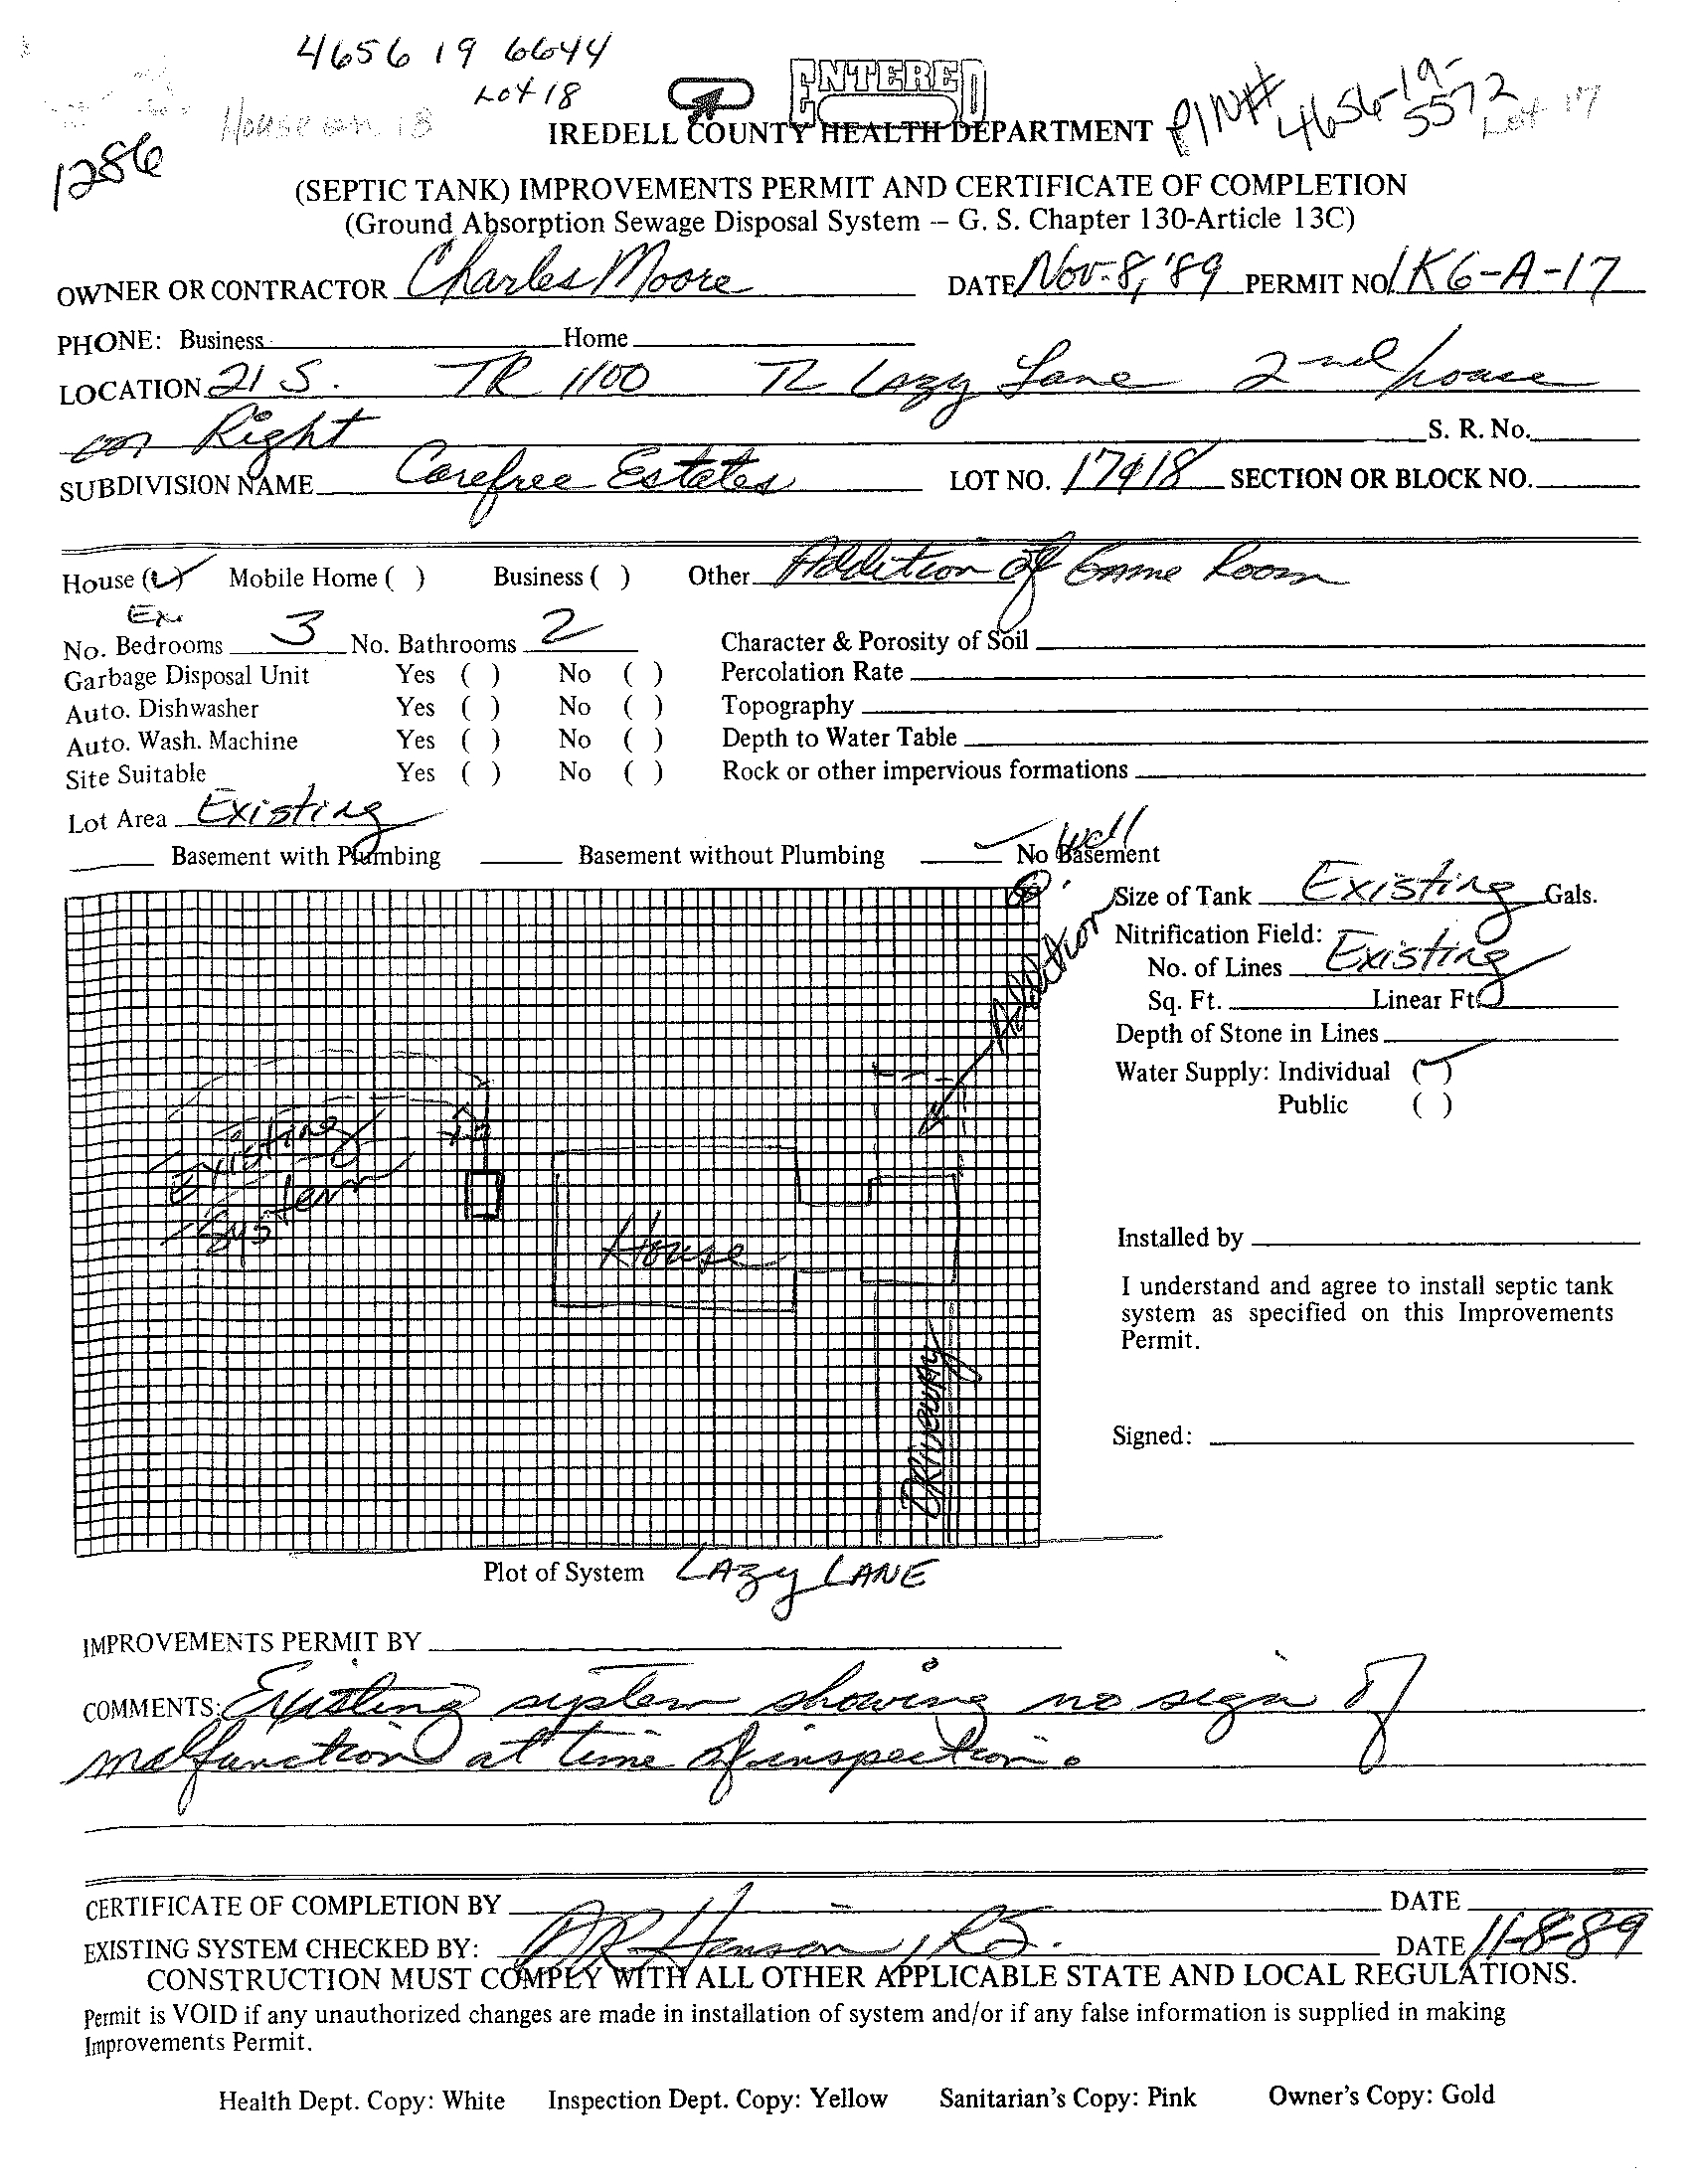 4656 19 6644
Lot 18
ENTERED
House on 18
1286
PIN# 4656-19-5572
Lot 17
IREDELL COUNTY HEALTH DEPARTMENT
(SEPTIC TANK) IMPROVEMENTS PERMIT AND CERTIFICATE OF COMPLETION
(Ground Absorption Sewage Disposal System – G. S. Chapter 130-Article 13C)
OWNER OR CONTRACTOR Charles Moore DATE Nov. 8, '89 PERMIT NO. 1K6-A-17
PHONE: Business Home
LOCATION 21 S. TR 1100 TL Lazy Lane 2nd house
on Right S. R. No.
SUBDIVISION NAME Carefree Estates LOT NO. 17&18 SECTION OR BLOCK NO.
House (✓) Mobile Home ( ) Business ( ) Other Addition of Game Room
Ex
No. Bedrooms 3 No. Bathrooms 2 Character & Porosity of Soil
Garbage Disposal Unit Yes ( ) No ( ) Percolation Rate
Auto. Dishwasher Yes ( ) No ( ) Topography
Auto. Wash. Machine Yes ( ) No ( ) Depth to Water Table
Site Suitable Yes ( ) No ( ) Rock or other impervious formations
Lot Area Existing
Basement with Plumbing Basement without Plumbing ✓ No Basement
Well
Addition
Size of Tank Existing Gals.
Nitrification Field:
No. of Lines Existing
Sq. Ft. Linear Ft.
Depth of Stone in Lines
Water Supply: Individual (✓)
Public ( )
Existing
System
House
Driveway
Installed by
I understand and agree to install septic tank
system as specified on this Improvements
Permit.
Signed:
Plot of System LAZY LANE
IMPROVEMENTS PERMIT BY
COMMENTS: Existing system showing no sign of
malfunction at time of inspection.
CERTIFICATE OF COMPLETION BY DATE
EXISTING SYSTEM CHECKED BY: DR Henson, RS. DATE 11-8-89
CONSTRUCTION MUST COMPLY WITH ALL OTHER APPLICABLE STATE AND LOCAL REGULATIONS.
Permit is VOID if any unauthorized changes are made in installation of system and/or if any false information is supplied in making
Improvements Permit.
Health Dept. Copy: White Inspection Dept. Copy: Yellow Sanitarian's Copy: Pink Owner's Copy: Gold